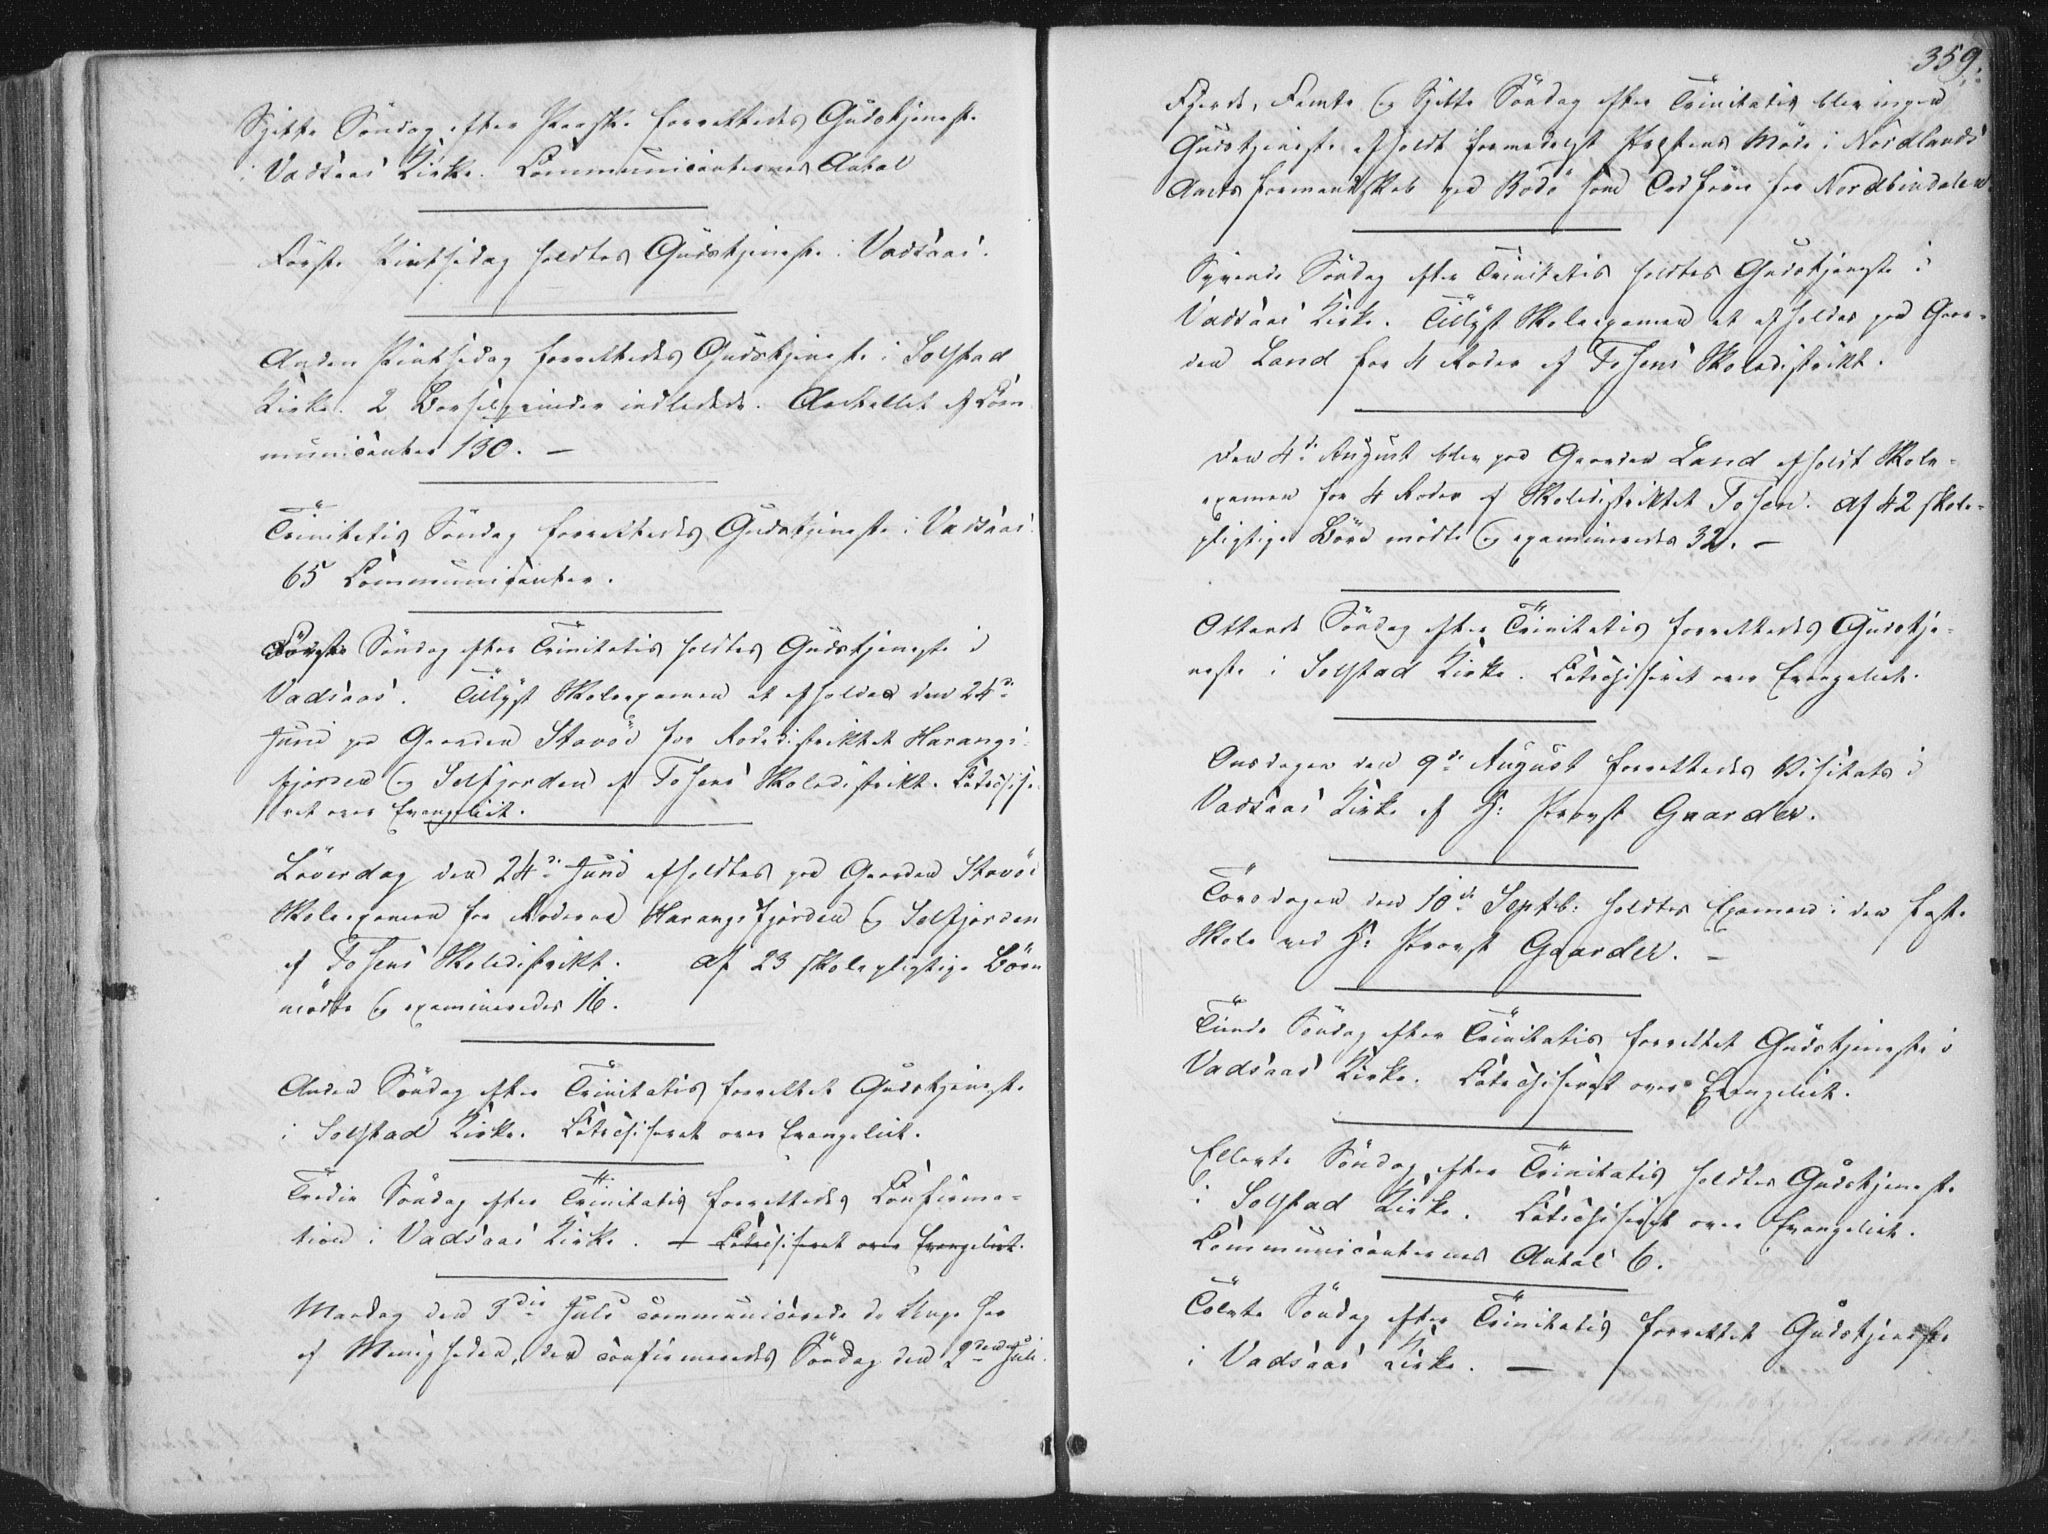 Sjette Söndag efter Paaske forrettedes Gudstjeneste
i Vadsaas Kirke. Communicanternes Antal
Förste Pintsedag holdtes Gudstjeneste i Vadsaas.
Anden Pintsedag forrettedes Gudstjeneste i Solstad
Kirke. 2 Barselqvinder indledede. Antallet af Com
municanter 130. –
Trinitatis Söndag forrettedes Gudstjeneste i Vadsaas.
65 Communicanter.
Förste Söndag efter Trinitatis holdtes Gudstjeneste i
Vadsaas. Tillyst Skoleexamen at afholdes den 24de
Juni paa Gaarden Stavöe for Rodedistriktet Harangs-
fjorden og Solfjorden af Tosens Skoledistrikt. Catechise-
ret over Evangeliet.
Löverdag den 24de Juni afholdtes paa Gaarden Stavöe
Skoleexamen for Roderne Harangsfjorden og Solfjorden
af Tosens Skoledistrikt. Af 23 skolepligtige Börn
mödte og examineredes 16.
Anden Söndag efter Trinitatis forrettet Gudstjeneste
i Solstad Kirke. Catechiseret over Evangeliet.
Tredie Söndag efter Trinitatis forrettedes Confirma-
tion i Vadsaas Kirke. – Catechiseret over Evangeliet.
Mandag den 3die Juli communicerede de Unge her
af Menigheden, der confirmeredes Söndag den 2den Juli.
359.
Fjerde, Femte og Sjette Söndag efter Trinitatis blev ingen
Gudstjeneste afholdt formedelst Præstens Möde i Nordlands
Amts formandskab paa Bodö som Ordförer for Nordbindalen.
Syvende Söndag efter Trinitatis holdtes Gudstjeneste i
Vadsaas Kirke. Tillyst Skoleexamen at afholdes paa Gaar-
den Land for 4 Roder af Tosens Skoledistrikt.
Den 4de August blev paa Gaarden Land afholdt Skole-
examen for 4 Roder af Skoledistriktet Tosen. Af 42 skole-
pligtige Börn mödte og examineredes 32. –
Ottende Söndag efter Trinitatis forrettedes Gudstje-
neste i Solstad Kirke. Catechiseret over Evangeliet.
Onsdagen den 9de August forrettedes Visitats i
Vadsaas Kirke af Hr Provst Gaarder.
Torsdagen den 10de Septb: holdtes Examen i den faste
Skole ved Hr Provst Gaarder. –
Tiende Söndag efter Trinitatis forrettet Gudstjeneste i
Vadsaas Kirke. Catechiseret over Evangeliet.
Ellevte Söndag efter Trinitatis holdtes Gudstjeneste
i Solstad Kirke. Catechiseret over Evangeliet.
Communicanternes Antal 6.
Tolvte Söndag efter Trinitatis forrettet Gudstjeneste
i Vadsaas Kirke. –